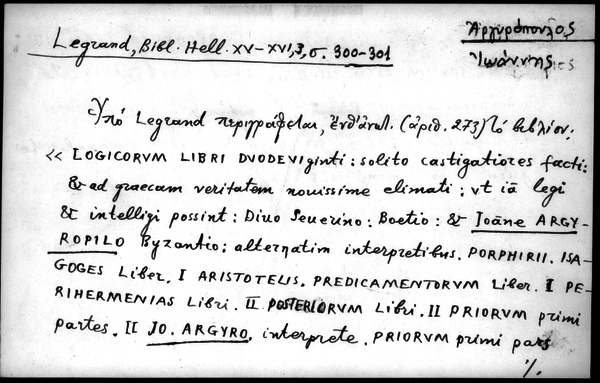 Ἀργυρόπουλος
Ἰωάννης
Legrand, Bibl. Hell. XV–XVI, 3, σ. 300-301
Ὑπό Legrand περιγράφεται, ἐνθ' ἀνωτ. (ἀριθ. 273) τό βιβλίον:
« LOGICORVM LIBRI DVODEVIginti : solito castigatiores facti:
& ad graecam veritatem nouissime elimati ; vt iā legi
& intelligi possint : Diuo Seuerino : Boetio : & Joāne ARGY-
ROPILO Byzantio ; alternatim interpretibus. PORPHIRII. ISA-
GOGES Liber. I ARISTOTELIS. PREDICAMENTORVM Liber. I PE-
RIHERMENIAS Libri. II POSTERIORVM Libri. II PRIORVM primi
partes. II JO. ARGYRO. interprete. PRIORVM primi pars
·/.